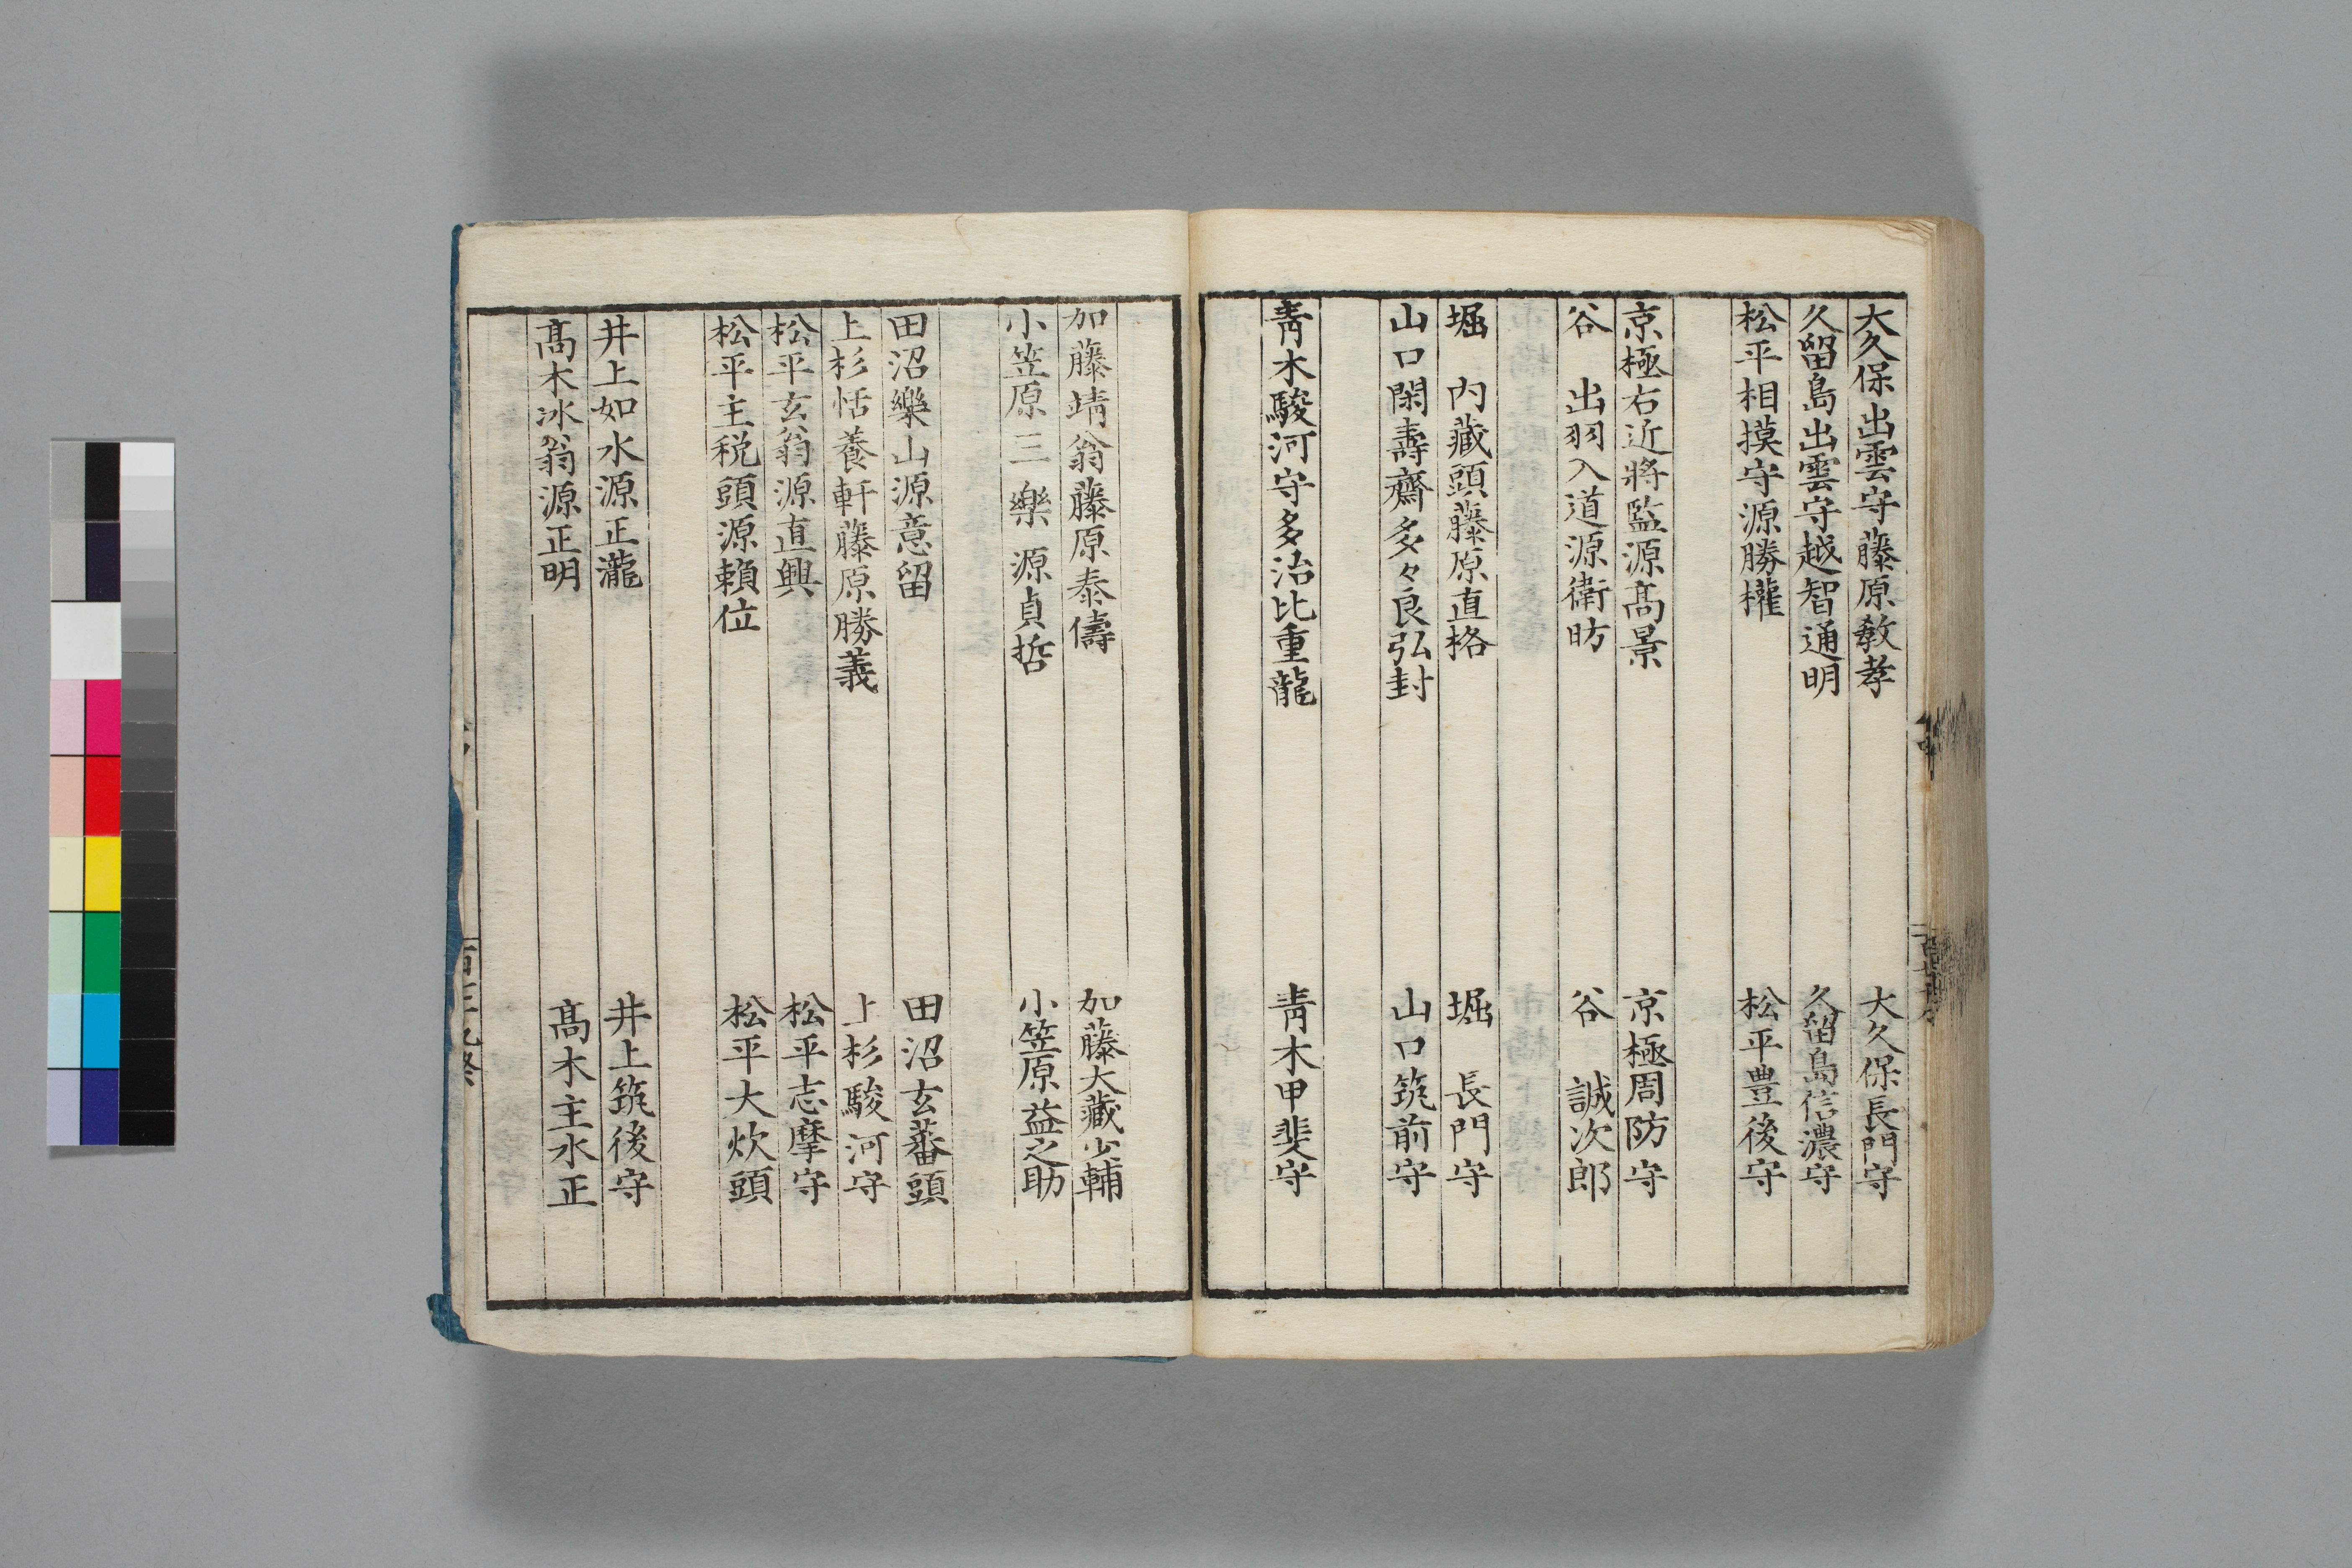 大久保出雲守藤原教孝　大久保長門守
久留島出雲守越智通明　久留島信濃守
松平相摸守源勝權　松平豊後守
京極右近將監源髙景　京極周防守
谷　出羽入道源衛昉　谷　誠次郎
堀　内藏頭藤原直格　堀　長門守
山口閑壽齋多々良弘封　山口筑前守
靑木駿河守多治比重龍　靑木甲斐守
加藤靖翁藤原泰儔　加藤大藏少輔
小笠原三樂源貞哲　小笠原益之助
田沼樂山源意留　田沼玄蕃頭
上杉恬養軒藤原勝義　上杉駿河守
松平玄翁源直興　松平志摩守
松平主税頭源頼位　松平大炊頭
井上如水源正瀧　井上筑後守
髙木冰翁源正明　髙木主水正